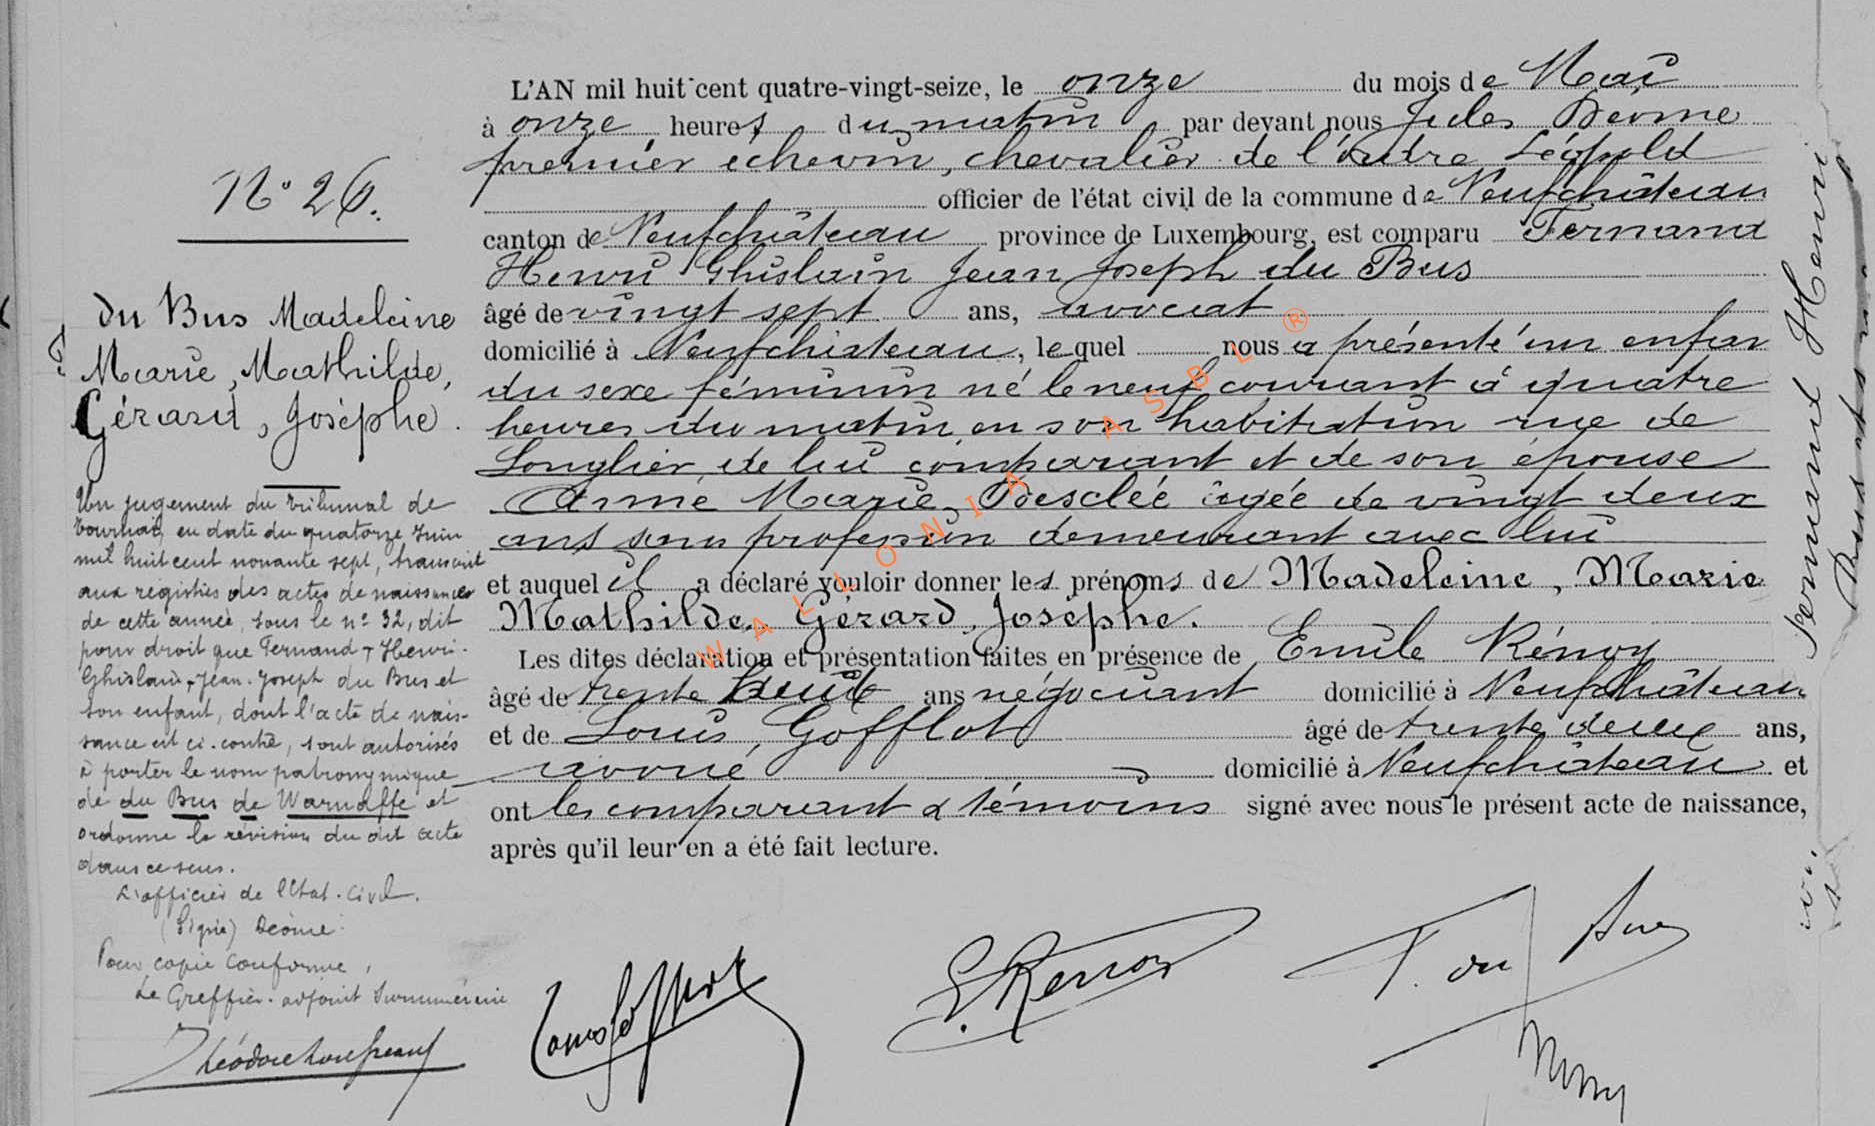 N° 26.
du Bus Madeleine
Marie, Mathilde,
Gérard, Josèphe.
Un jugement du tribunal de
Tournai, en date du quatorze Juin
mil huit cent nonante sept, transcrit
aux registres des actes de naissances
de cette année, sous le n° 32, dit
pour droit que Fernand-Henri-
Ghislain-Jean-Joseph du Bus et
son enfant, dont l'acte de nais-
sance est ci-contre, sont autorisés
à porter le nom patronymique
de du Bus de Warnaffe et
ordonne la révision du dit acte
dans ce sens.
L'officier de l'Etat-Civil.
(Signé) Deome
Pour copie conforme,
Le Greffier-adjoint Surnuméraire
L'AN mil huit cent quatre-vingt-seize, le onze du mois de Mai
à onze heures du matin par devant nous Jules Deome
premier échevin, chevalier de l'ordre Léopold
officier de l'état civil de la commune de Neufchâteau
canton de Neufchâteau province de Luxembourg, est comparu Fernand
Henri Ghislain Jean Joseph du Bus
âgé de vingt sept ans, avocat
domicilié à Neufchâteau, lequel nous a présenté un enfan
du sexe féminin né le neuf courant à quatre
heures du matin en son habitation rue de
Longlier de lui comparant et de son épouse
Anne Marie Desclée âgée de vingt deux
ans sans profession demeurant avec lui
et auquel il a déclaré vouloir donner les prénoms de Madeleine, Marie
Mathilde, Gérard, Josèphe.
Les dites déclaration et présentation faites en présence de Emile Rénoy
âgé de trente huit ans négociant domicilié à Neufchâteau
et de Louis Gofflot âgé de trente deux ans,
avoué domicilié à Neufchâteau et
ont les comparant & témoins signé avec nous le présent acte de naissance,
après qu'il leur en a été fait lecture.
Louis Gofflot
E. Renoy
F. du Bus
Fernand Henri
WALLONIA ASBL ®